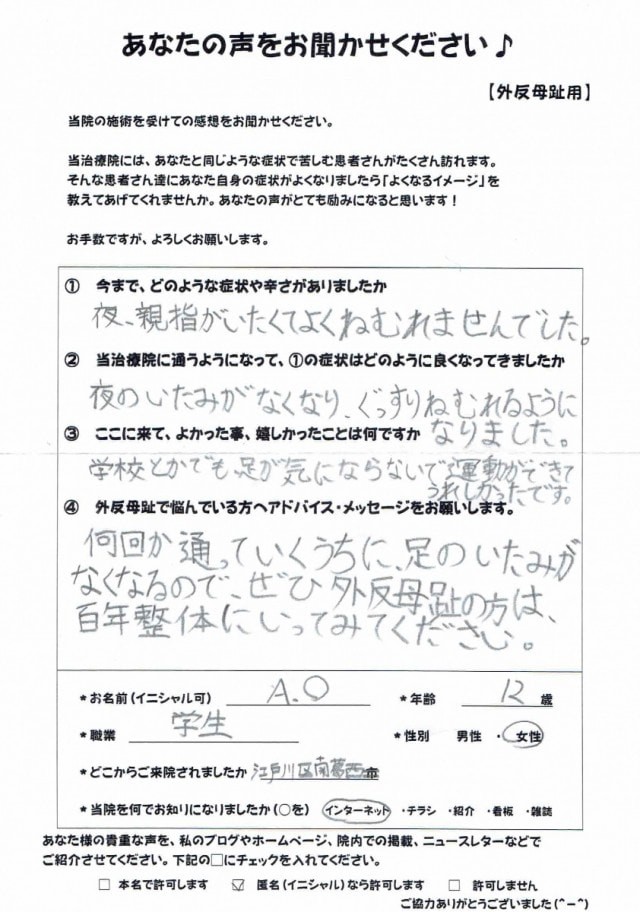 あなたの声をお聞かせください♪
【外反母趾用】
当院の施術を受けての感想をお聞かせください。
当治療院には、あなたと同じような症状で苦しむ患者さんがたくさん訪れます。
そんな患者さん達にあなた自身の症状がよくなりましたら「よくなるイメージ」を
教えてあげてくれませんか。あなたの声がとても励みになると思います！
お手数ですが、よろしくお願いします。
① 今まで、どのような症状や辛さがありましたか
夜、親指がいたくてよくねむれませんでした。
② 当治療院に通うようになって、①の症状はどのように良くなってきましたか
夜のいたみがなくなり、ぐっすりねむれるように
なりました。
③ ここに来て、よかった事、嬉しかったことは何ですか
学校とかでも、足が気にならないで運動ができて
うれしかったです。
④ 外反母趾で悩んでいる方へアドバイス・メッセージをお願いします。
何回か通っていくうちに、足のいたみが
なくなるので、ぜひ外反母趾の方は、
百年整体にいってみてください。
*お名前（イニシャル可） A.O *年齢 12 歳
*職業 学生 *性別 男性 ・ 女性
*どこからご来院されましたか 江戸川区南葛西市
*当院を何でお知りになりましたか（○を） インターネット ・チラシ ・紹介 ・看板 ・雑誌
あなた様の貴重な声を、私のブログやホームページ、院内での掲載、ニュースレターなどで
ご紹介させてください。下記の□にチェックを入れてください。
□ 本名で許可します ☑ 匿名（イニシャル）なら許可します □ 許可しません
ご協力ありがとうございました（^－^）